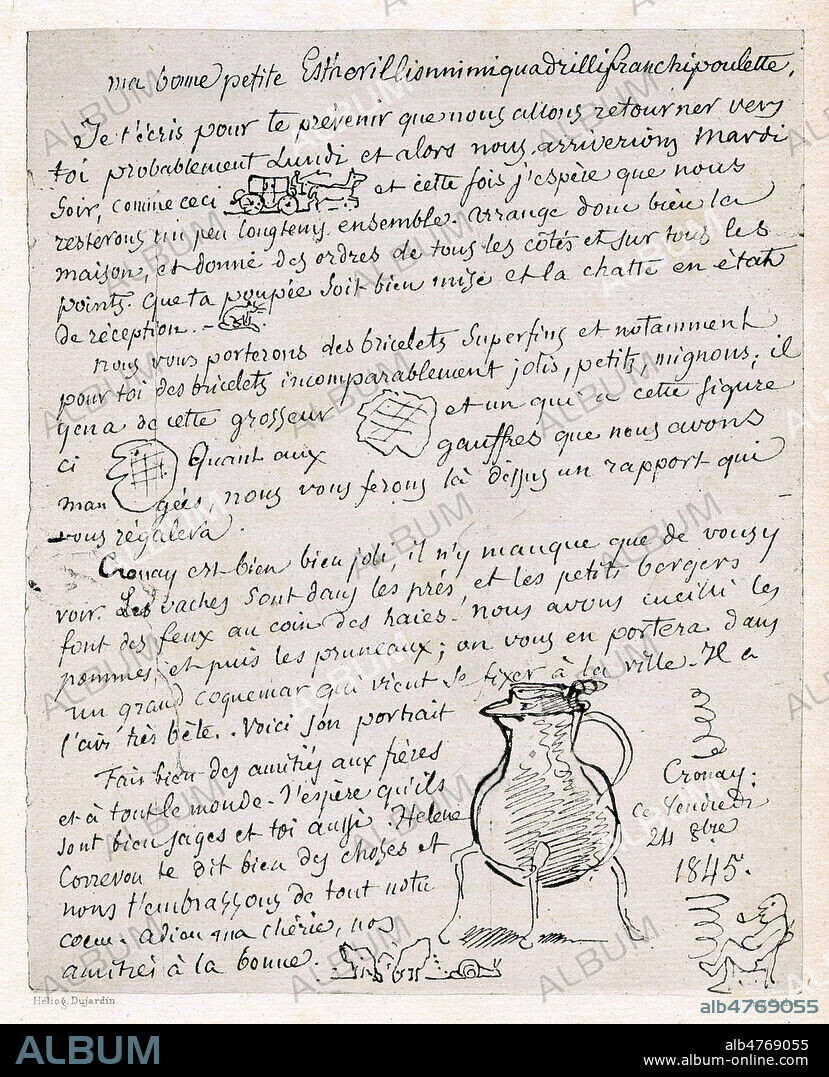 ma bonne petite Esthovillionnimiquadrillifranchipoulette.
Je t'écris pour te prévenir que nous allons retourner vers
toi probablement Lundi et alors nous arriverions Mardi
soir, comme ceci et cette fois j'espère que nous
resterons un peu longtems ensemble. Arrange donc bien la
maison, et donne des ordres de tous les côtés et sur tous les
points. Que ta poupée soit bien mise et la chatte en état
de réception. -
Nous vous porterons des bricelets superfins et notamment
pour toi des bricelets incomparablement jolis, petits, mignons; il
y en a de cette grosseur et un qui a cette figure
ci Quant aux gauffres que nous avons
man gées, nous vous ferons là dessus un rapport qui
vous régalera.
Cronay est bien bien joli, il n'y manque que de vous y
voir. Les vaches sont dans les prés, et les petits bergers
font des feux au coin des haies. Nous avons cueilli les
pommes, et puis les pruneaux; on vous en portera dans
un grand coquemar qui vient se fixer à la ville. Il a
l'air très bête. Voici son portrait
Fais bien des amitiés aux frères
et à tout le monde. J'espère qu'ils
sont bien sages et toi aussi. Helene
Correvon te dit bien des choses et
nous t'embrassons de tout notre
coeur. Adieu ma chérie, nos
amitiés à la bonne.
Cronay:
ce Vendredi
24 8bre
1845.
Héliog. Dujardin
ALBUM
alb4769055
ALBUM
alb4769055
www.album-online.com